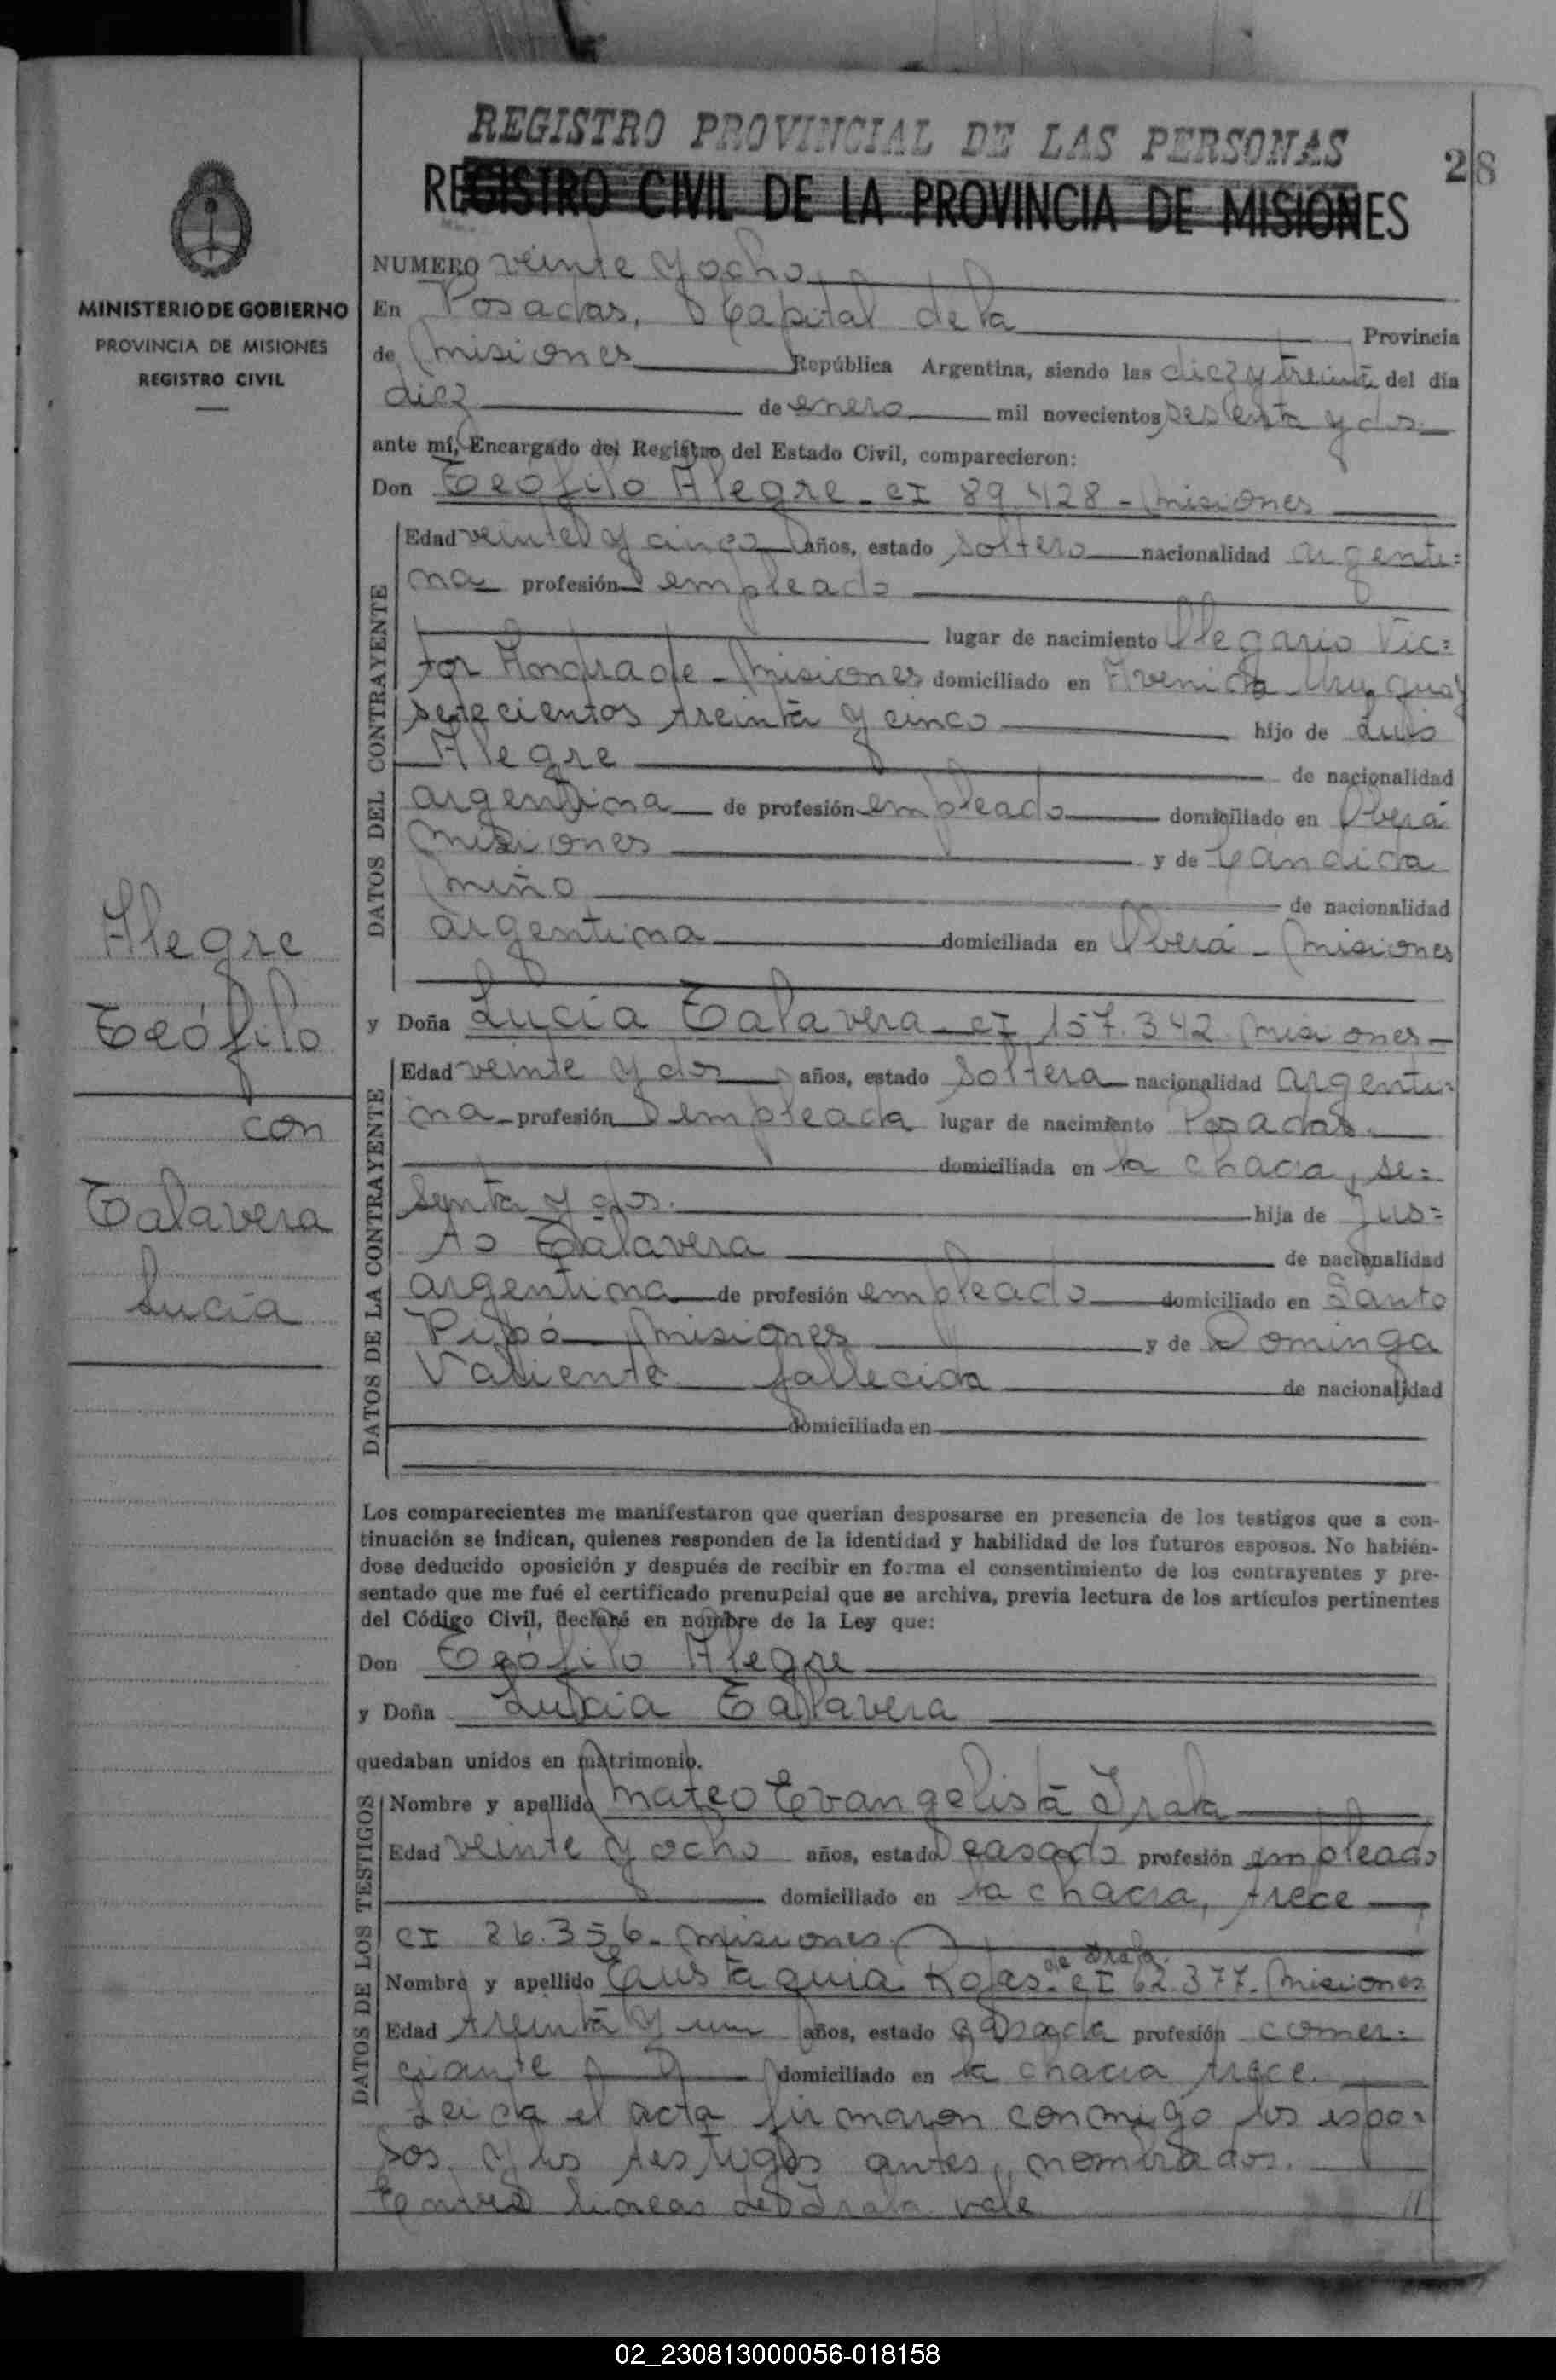 REGISTRO PROVINCIAL DE LAS PERSONAS
28
REGISTRO CIVIL DE LA PROVINCIA DE MISIONES
MINISTERIO DE GOBIERNO
PROVINCIA DE MISIONES
REGISTRO CIVIL
NUMERO veinte y ocho
En Posadas, Capital de la Provincia
de Misiones República Argentina, siendo las diez y treinta del día
diez de enero mil novecientos sesenta y dos
ante mí, Encargado del Registro del Estado Civil, comparecieron:
Don Teófilo Alegre - CI 89.428 - Misiones
DATOS DEL CONTRAYENTE
Edad veinte y cinco años, estado soltero nacionalidad argenti=
na profesión empleado
lugar de nacimiento Olegario Vic=
tor Andrade - Misiones domiciliado en Avenida Uruguay
setecientos treinta y cinco hijo de Luis
Alegre de nacionalidad
argentina de profesión empleado domiciliado en Oberá
Misiones y de Candida
Miño de nacionalidad
argentina domiciliada en Oberá - Misiones
Alegre
Teófilo
con
Talavera
Lucía
y Doña Lucía Talavera - CI 157.342 Misiones -
DATOS DE LA CONTRAYENTE
Edad veinte y dos años, estado soltera nacionalidad argenti=
na profesión empleada lugar de nacimiento Posadas
domiciliada en la chacra, se=
senta y dos. hija de Jus=
to Talavera de nacionalidad
argentina de profesión empleado domiciliado en Santo
Pipó Misiones y de Dominga
Valiente fallecida de nacionalidad
domiciliada en
Los comparecientes me manifestaron que querían desposarse en presencia de los testigos que a con-
tinuación se indican, quienes responden de la identidad y habilidad de los futuros esposos. No habién-
dose deducido oposición y después de recibir en forma el consentimiento de los contrayentes y pre-
sentado que me fué el certificado prenupcial que se archiva, previa lectura de los artículos pertinentes
del Código Civil, declaré en nombre de la Ley que:
Don Teófilo Alegre
y Doña Lucía Talavera
quedaban unidos en matrimonio.
DATOS DE LOS TESTIGOS
Nombre y apellido Mateo Evangelista Irala
Edad veinte y ocho años, estado casado profesión empleado
domiciliado en la chacra, trece
CI 26.356 - Misiones
de Irala.
Nombre y apellido Eustaquia Rojas - CI 62.377 - Misiones
Edad treinta y un años, estado casada profesión comer=
ciante domiciliado en la chacra trece.
Leida el acta firmaron conmigo los espo=
sos y los testigos antes nombrados.
Entre lineas de Irala vale
02_230813000056-018158